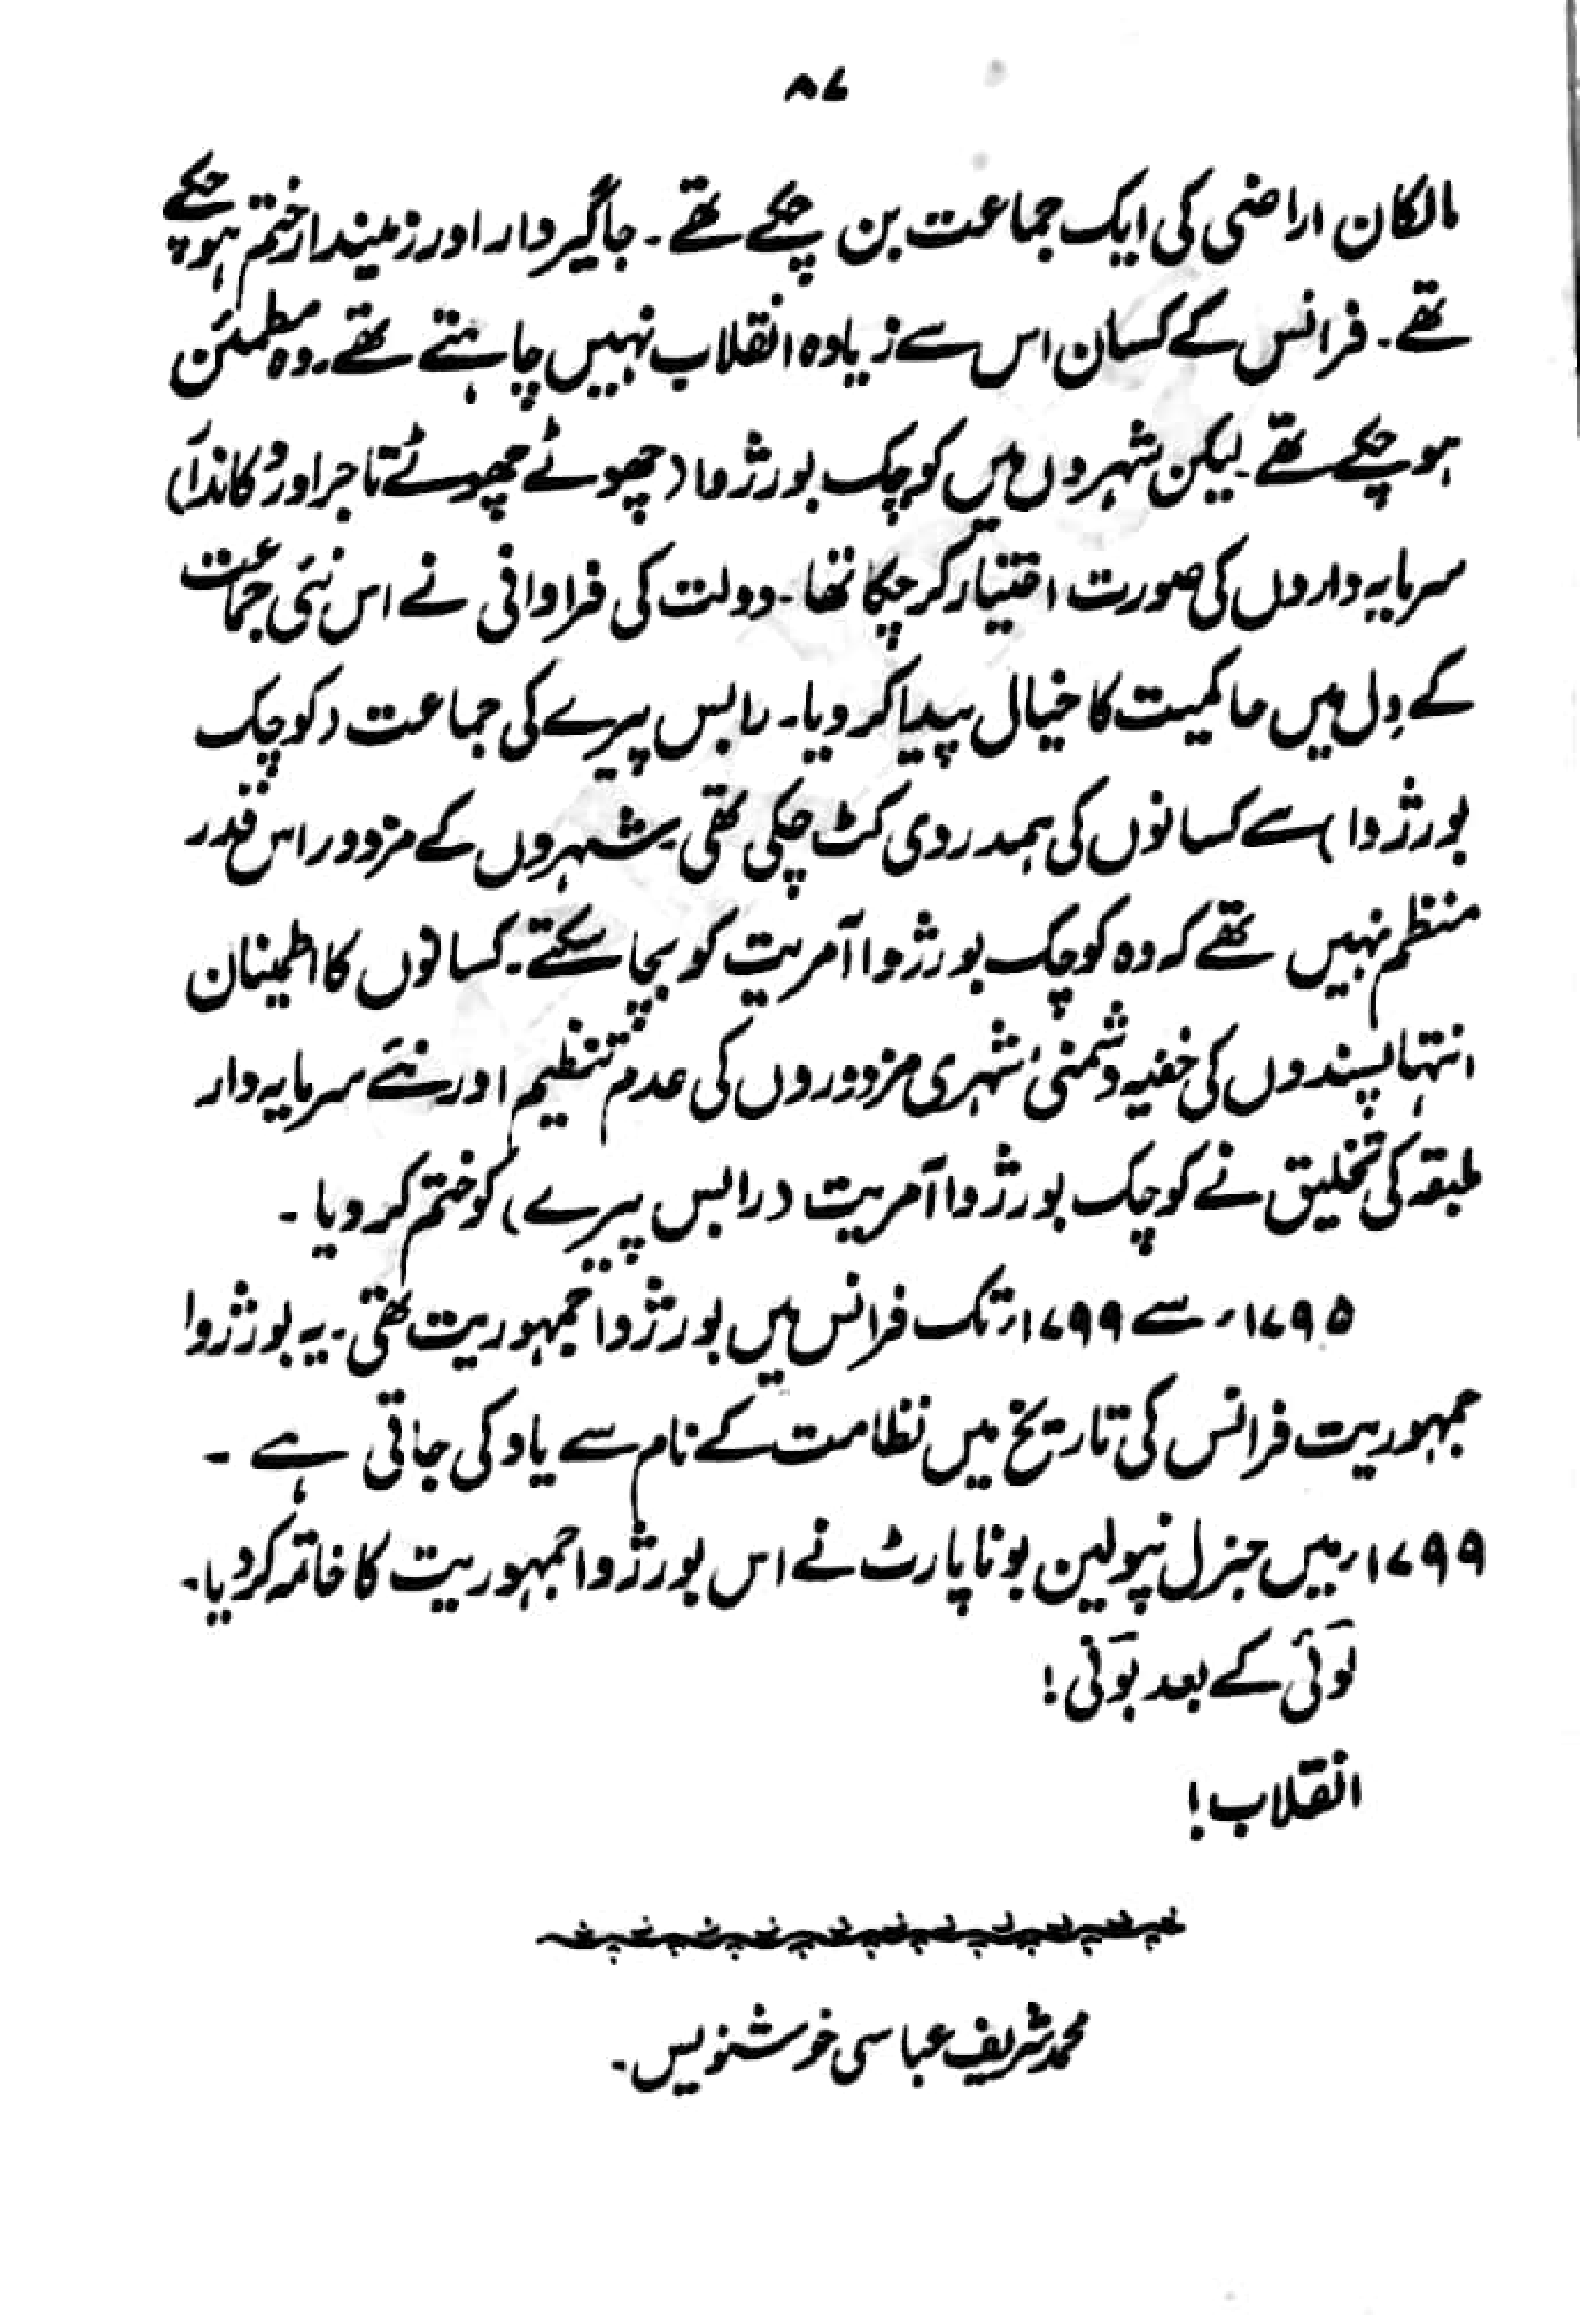 ۸۷
مالکان اراضی کی ایک جماعت بن چکے تھے۔ جاگیردار اور زمیندار ختم ہو چکے
تھے۔ فرانس کے کسان اس سے زیادہ انقلاب نہیں چاہتے تھے۔ وہ مطمئن
ہو چکے تھے۔ لیکن شہروں میں کوچک بورژوا (چھوٹے چھوٹے تاجر اور دُکاندار)
سرمایہ داروں کی صورت اختیار کر چکا تھا۔ دولت کی فراوانی نے اس نئی جماعت
کے دِل میں حاکمیت کا خیال پیدا کر دیا۔ رابس پیرے کی جماعت (کوچک
بورژوا) سے کسانوں کی ہمدردی کٹ چکی تھی۔ شہروں کے مزدور اس قدر
منظم نہیں تھے کہ وہ کوچک بورژوا آمریت کو بچا سکتے۔ کسانوں کا اطمینان
انتہا پسندوں کی خفیہ دشمنی، شہری مزدوروں کی عدم تنظیم اور نئے سرمایہ دار
طبقہ کی تخلیق نے کوچک بورژوا آمریت (رابس پیرے) کو ختم کر دیا ۔
۱۷۹۵ء سے ۱۷۹۹ء تک فرانس میں بورژوا جمہوریت تھی۔ یہ بورژوا
جمہوریت فرانس کی تاریخ میں نظامت کے نام سے یاد کی جاتی ہے ۔
۱۷۹۹ء میں جنرل نپولین بونا پارٹ نے اس بورژوا جمہوریت کا خاتمہ کر دیا۔
لَوئی کے بعد بَونی!
انقلاب!
محمد شریف عباسی خوشنویس۔